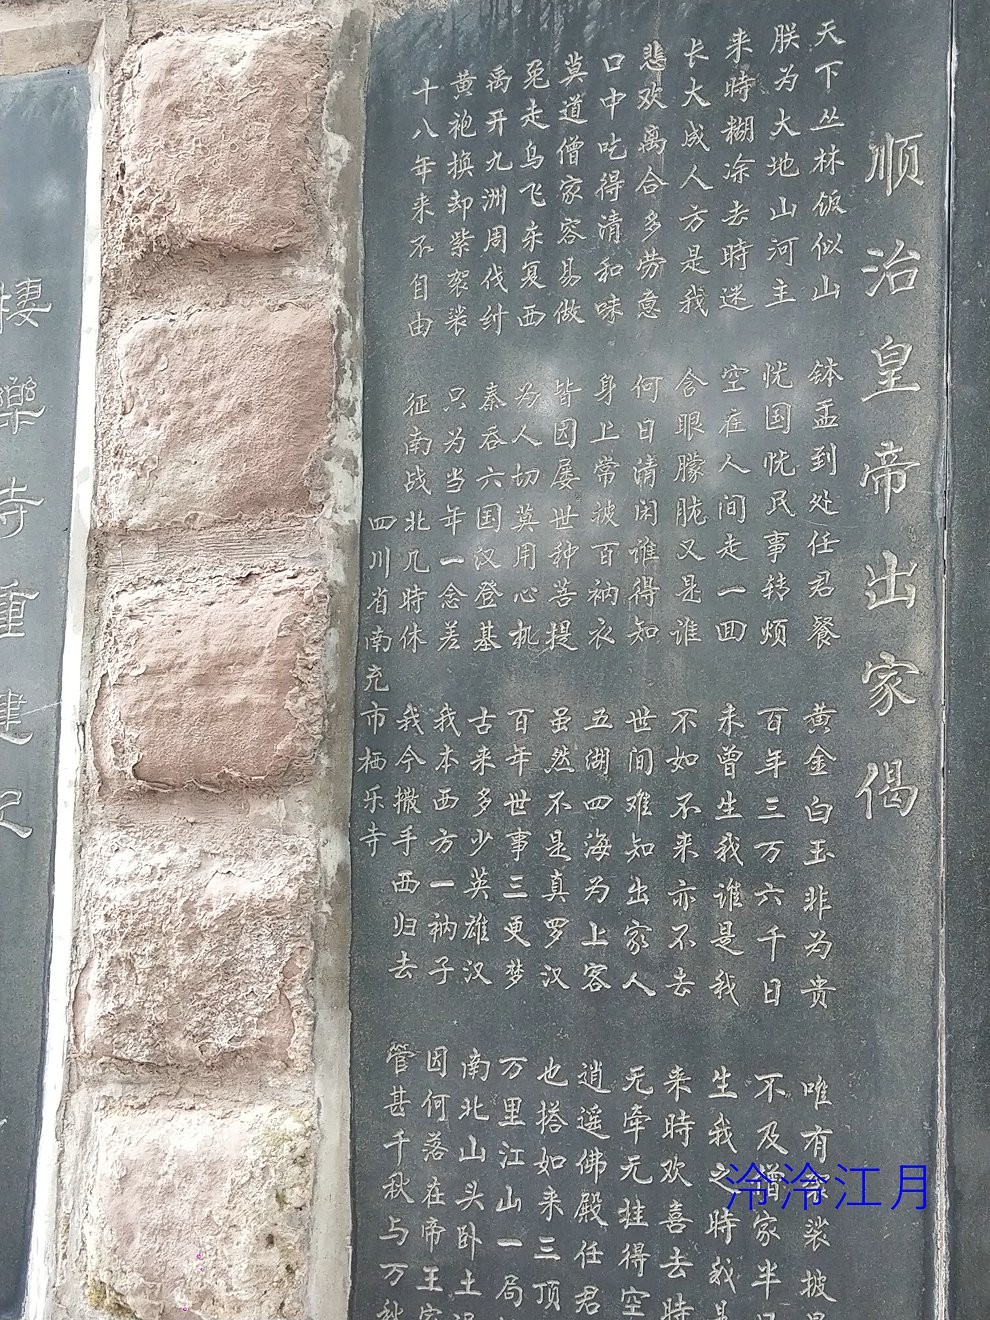 顺治皇帝出家偈
天下丛林饭似山 钵盂到处任君餐 黄金白玉非为贵 唯有袈裟披
朕为大地山河主 忧国忧民事转烦 百年三万六千日 不及僧家半
来時糊涂去時迷 空在人间走一回 未曾生我谁是我 生我之時我
长大成人方是我 含眼朦胧又是谁 不如不来亦不去 来時欢喜去時
悲欢离合多劳意 何日清闲谁得知 世间难知出家人 无牵无挂得空
口中吃得清和味 身上常披百衲衣 五湖四海为上客 逍遥佛殿任君
莫道僧家容易做 皆因屡世种菩提 虽然不是真罗汉 也搭如来三顶
兔走乌飞东复西 为人切莫用心机 百年世事三更梦 万里江山一局
禹开九洲周伐纣 秦吞六国汉登基 古来多少英雄汉 南北山头卧土
黄袍换却紫袈裟 只为当年一念差 我本西方一衲子 因何落在帝王
十八年来不自由 征南战北几時休 我今撒手西归去 管甚千秋与万
四川省南充市栖乐寺
棲樂寺重建记
泠泠江月